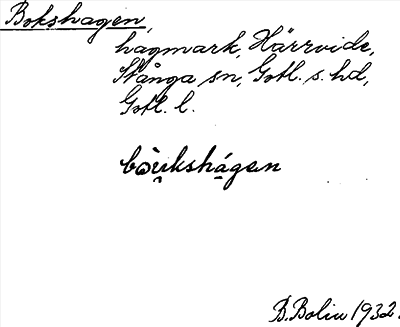 Bokshagen,
hagmark, Härrvide,
Stånga sn, Gotl. s. hd,
Gotl. l.
bɷ̀u̯kshá̱gɐn
B. Bolin 1932.